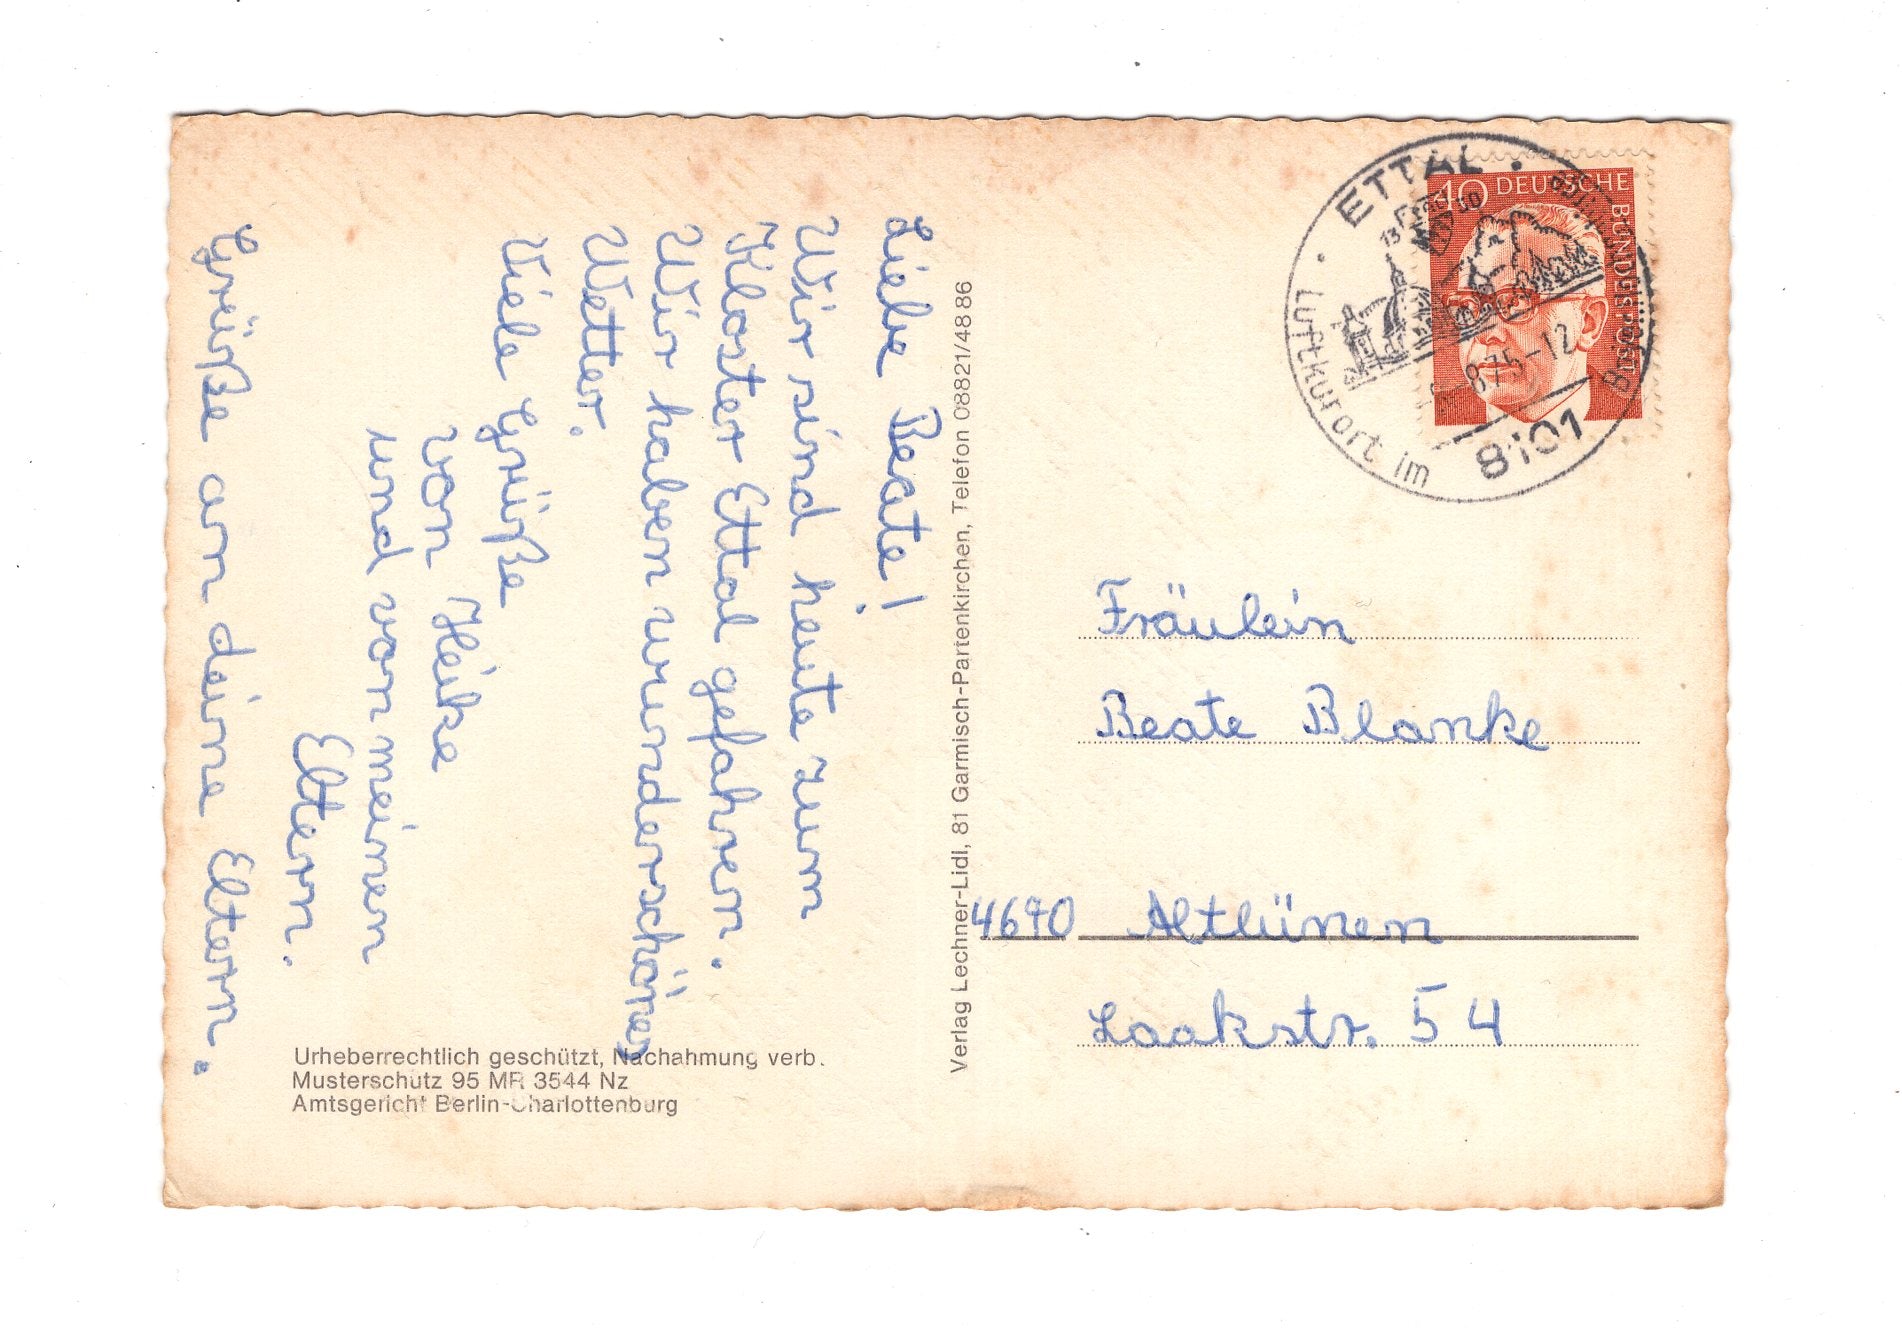 Liebe Beate!
Wir sind heute zum
Kloster Ettal gefahren.
Wir haben wunderschönes
Wetter.
Viele Grüße
von Heike
und von meinen
Eltern.
Grüße an deine Eltern.
Urheberrechtlich geschützt, Nachahmung verb.
Musterschutz 95 MR 3544 Nz
Amtsgericht Berlin-Charlottenburg
Verlag Lechner-Lidl, 81 Garmisch-Partenkirchen, Telefon 08821/48 86
ETTAL
Luftkurort im
8101
8.75-12
40 DEUTSCHE
BUNDESPOST
Fräulein
Beate Blanke
4670 Altlünen
Laakstr. 54